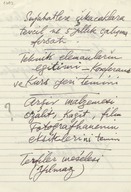 Seyahatlere çıkacaklara
tavsil ve 5 yıllık çalışma
fırsatı
Teknik elemanların
eğitimi - Konferans
ve kurs yeri temini
? Arşiv malzemesi
Ozalit, kağıt, film
Fotoğrafhanenin
eksiklerini temin
Terfiler meselesi
(Yılmaz)